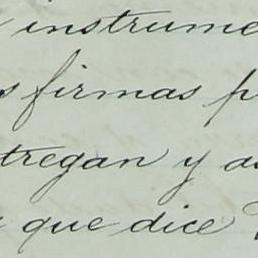 instrume
s firmas p
tregan y a
que dice